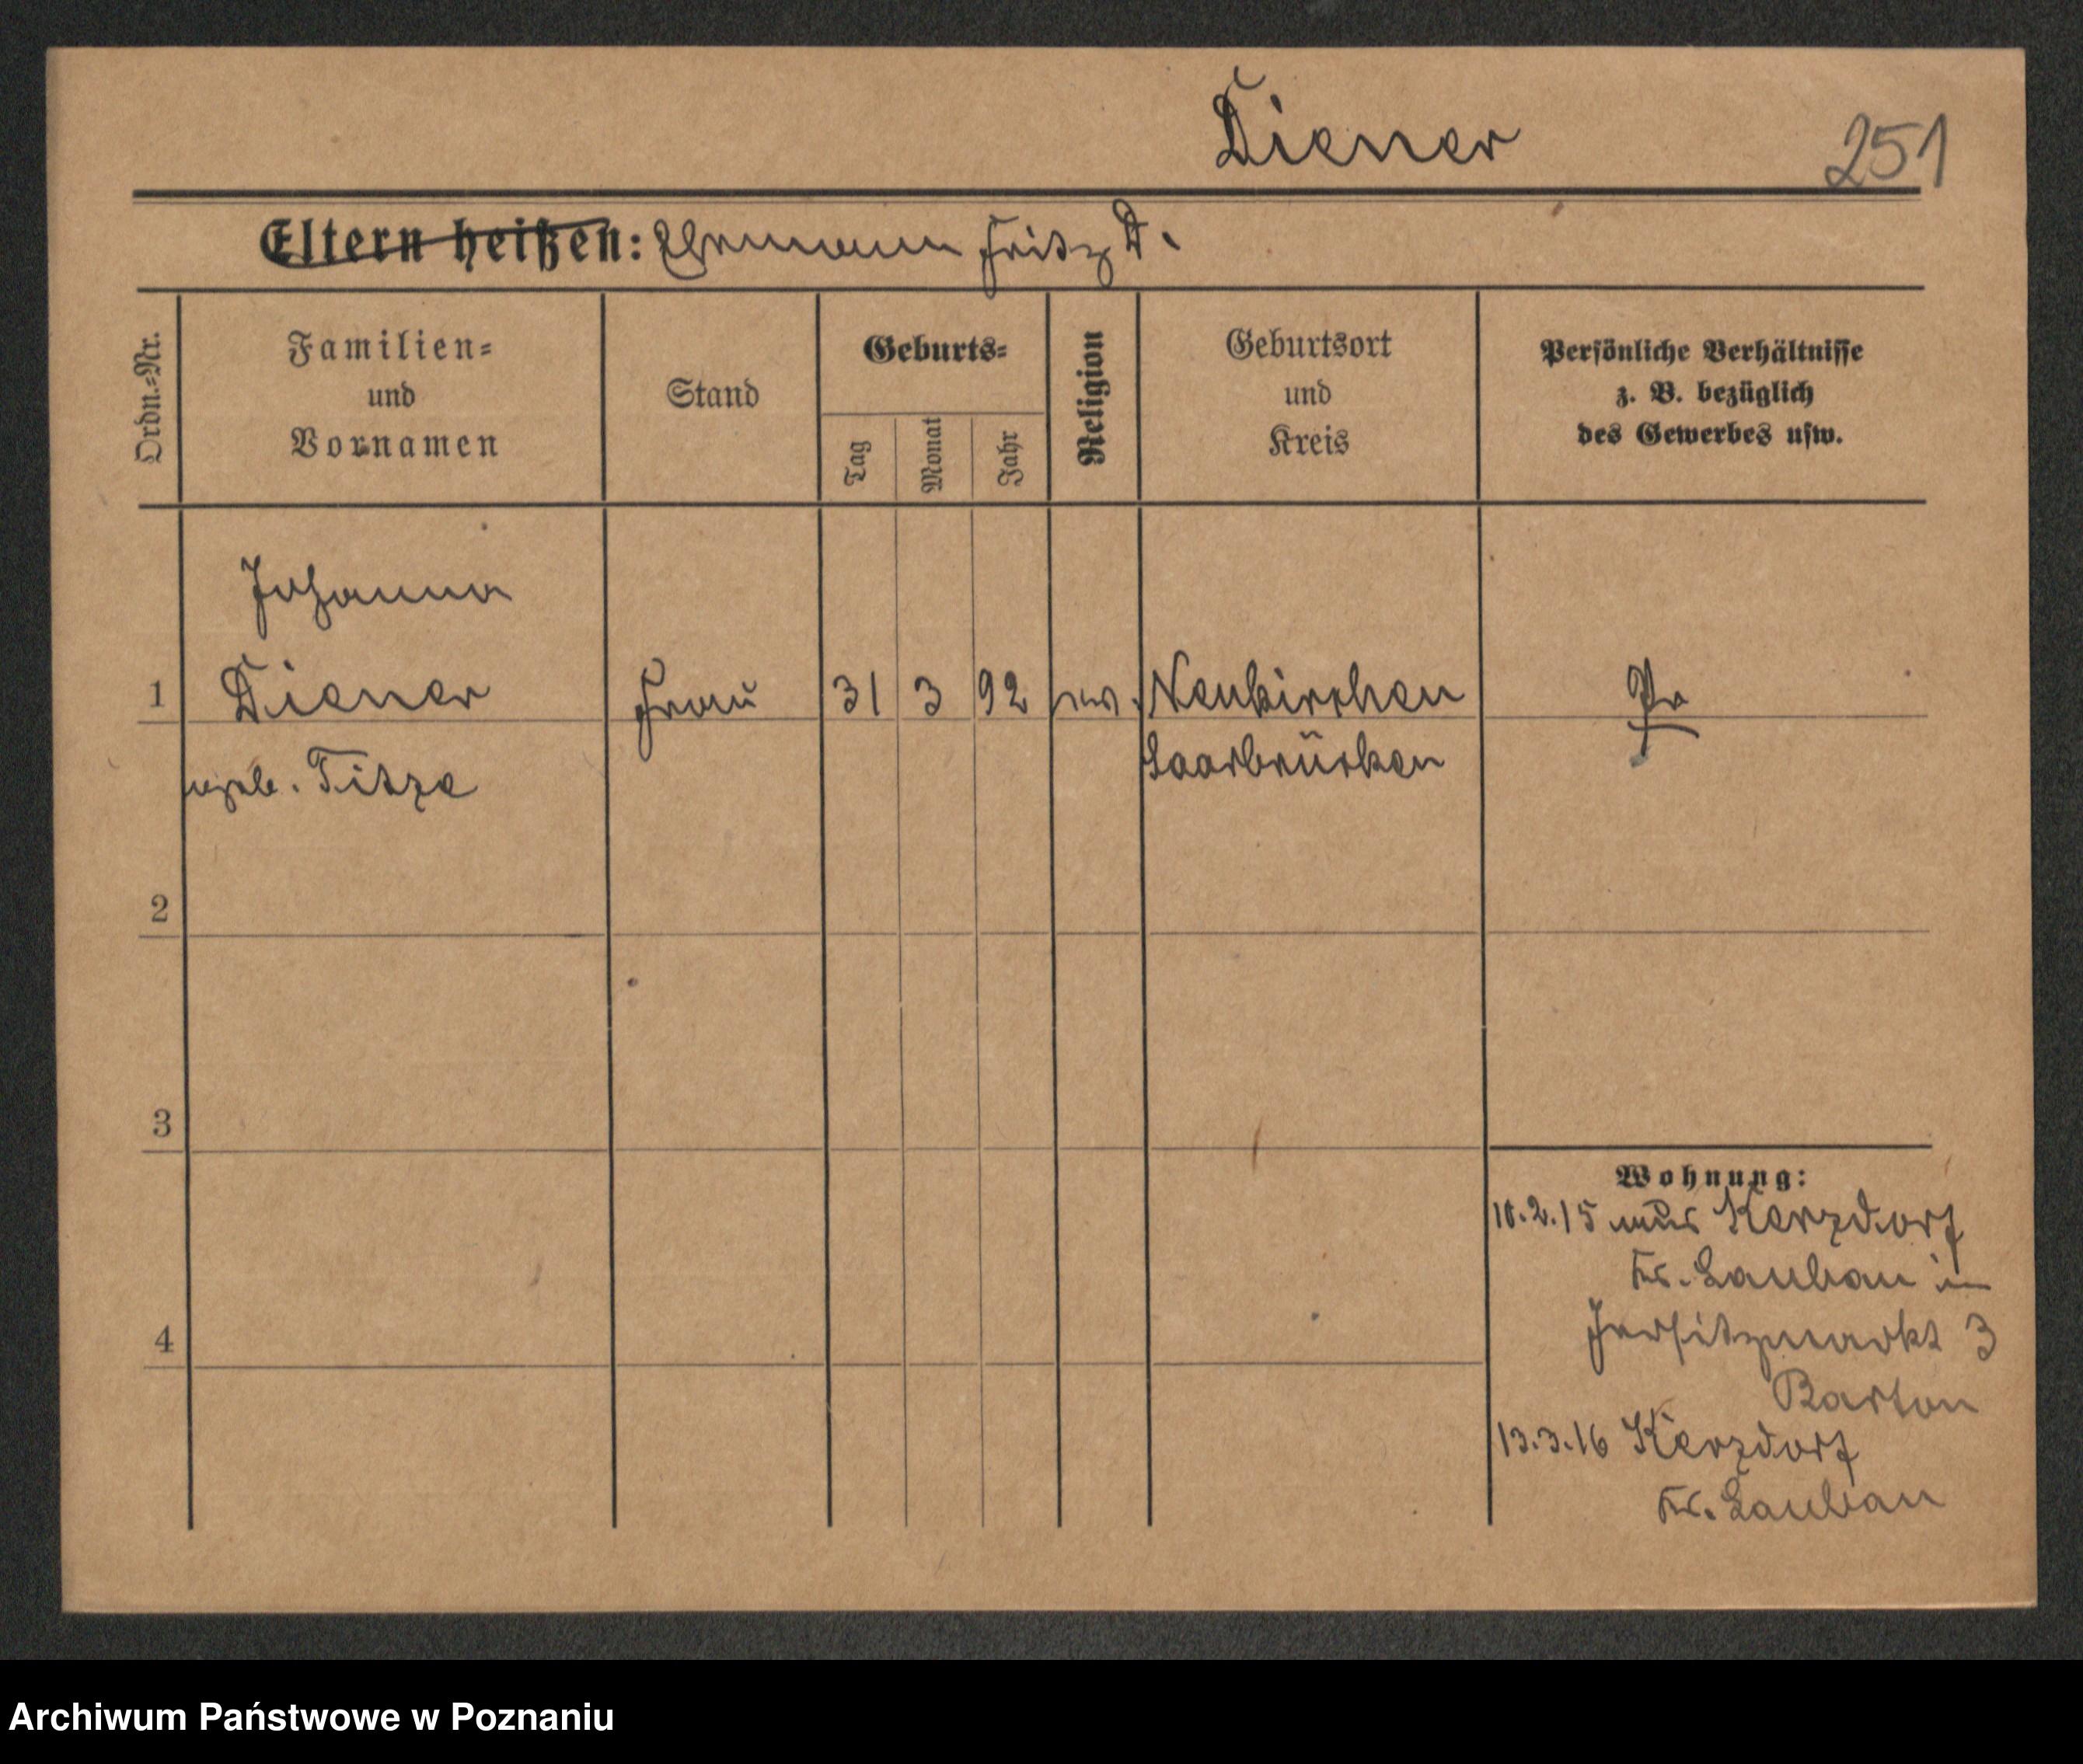 Diener
251
Eltern heißen: Ehemann Fritz D.
Ordn.-Nr.
Familien-
und
Vornamen
Stand
Geburts-
Tag
Monat
Jahr
Religion
Geburtsort
und
Kreis
Persönliche Verhältnisse
z. B. bezüglich
des Gewerbes usw.
Johanna
1 Diener Frau 31 3 92 ev. Neukirchen Pr
geb. Titze Saarbrücken
2
3
Wohnung:
10.2.15 aus Kerzdorf
Kr. Lauban in
4 Jersitzmarkt 3
Barton
13.3.16 Kerzdorf
Kr. Lauban
Archiwum Państwowe w Poznaniu